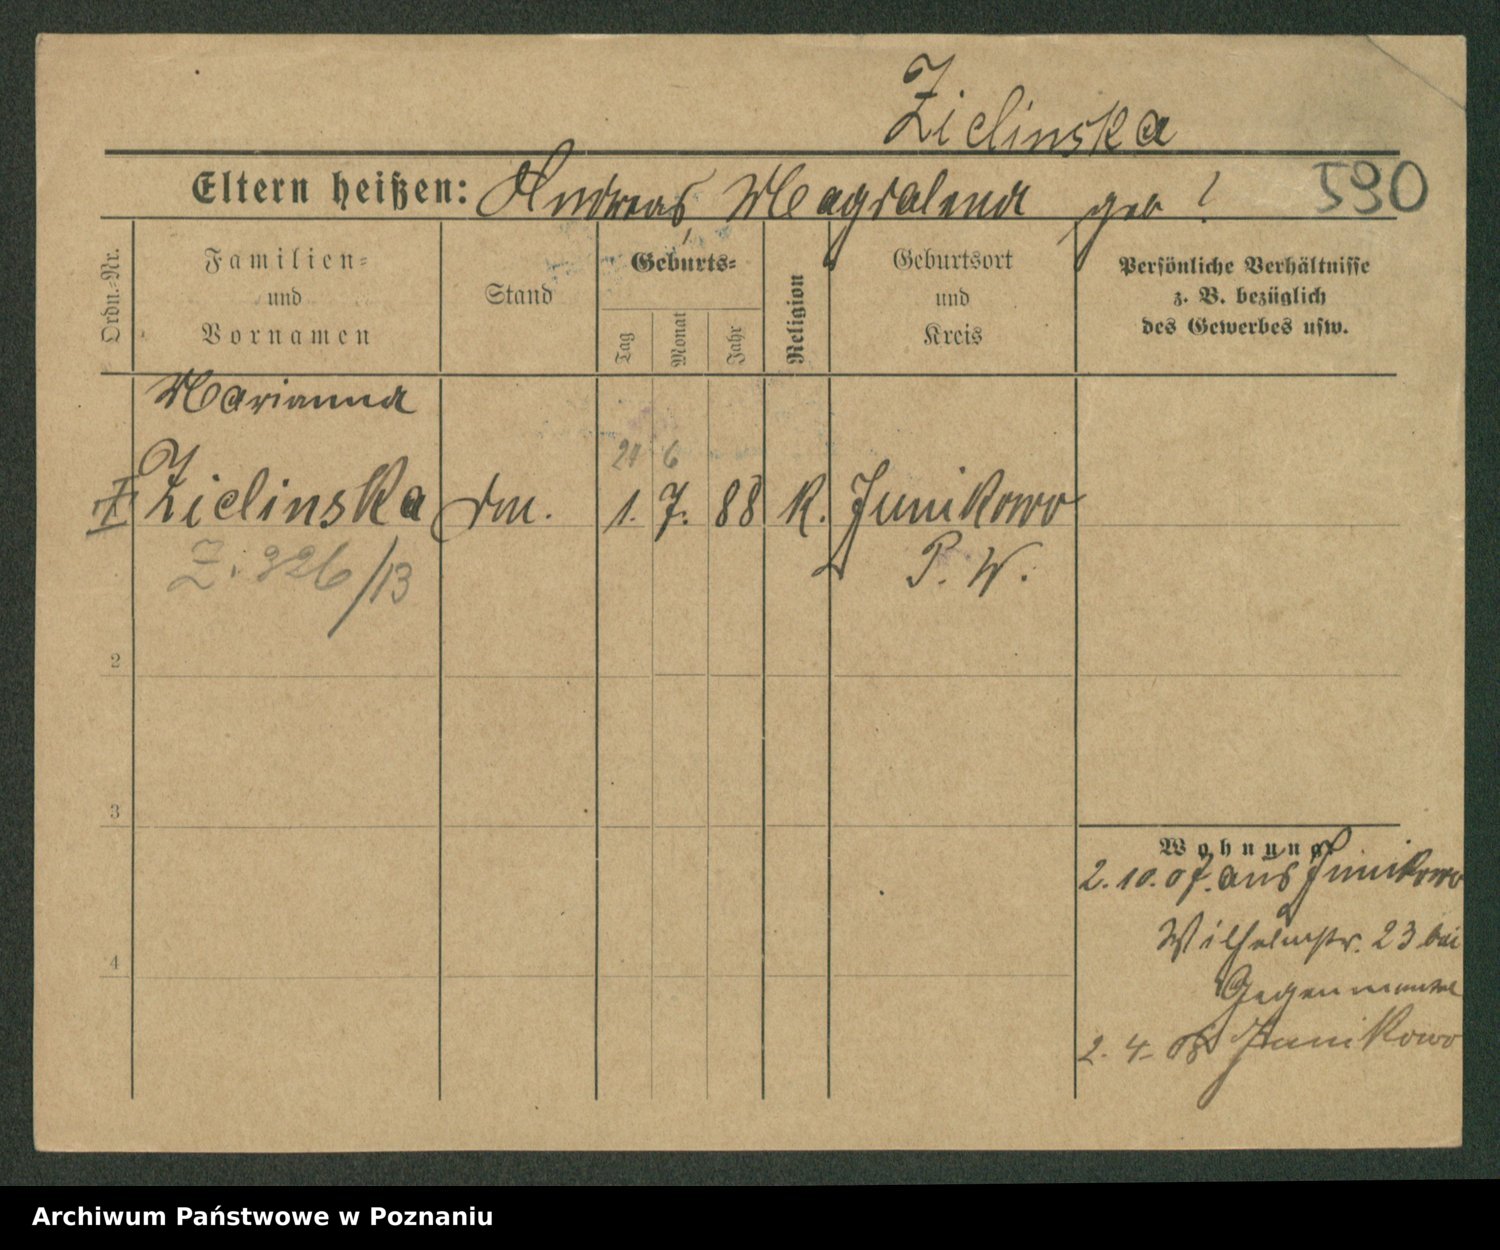 Zielinska
Eltern heißen: Andreas, Magdalena geb ?
590
Ordn.-Nr.
Familien-
und
Vornamen
Stand
Geburts-
Tag
Monat
Jahr
Religion
Geburtsort
und
Kreis
Persönliche Verhältnisse
z. B. bezüglich
des Gewerbes usw.
Marianna
21 6
Zielinska 1. 7. 88 K. Junikowo
Z. 326/13
P. W.
2
3
4
Wohnung
2. 10. 07. aus Junikowo
Wilhelmstr. 23 bei
2. 4. 08 Junikowo
Archiwum Państwowe w Poznaniu